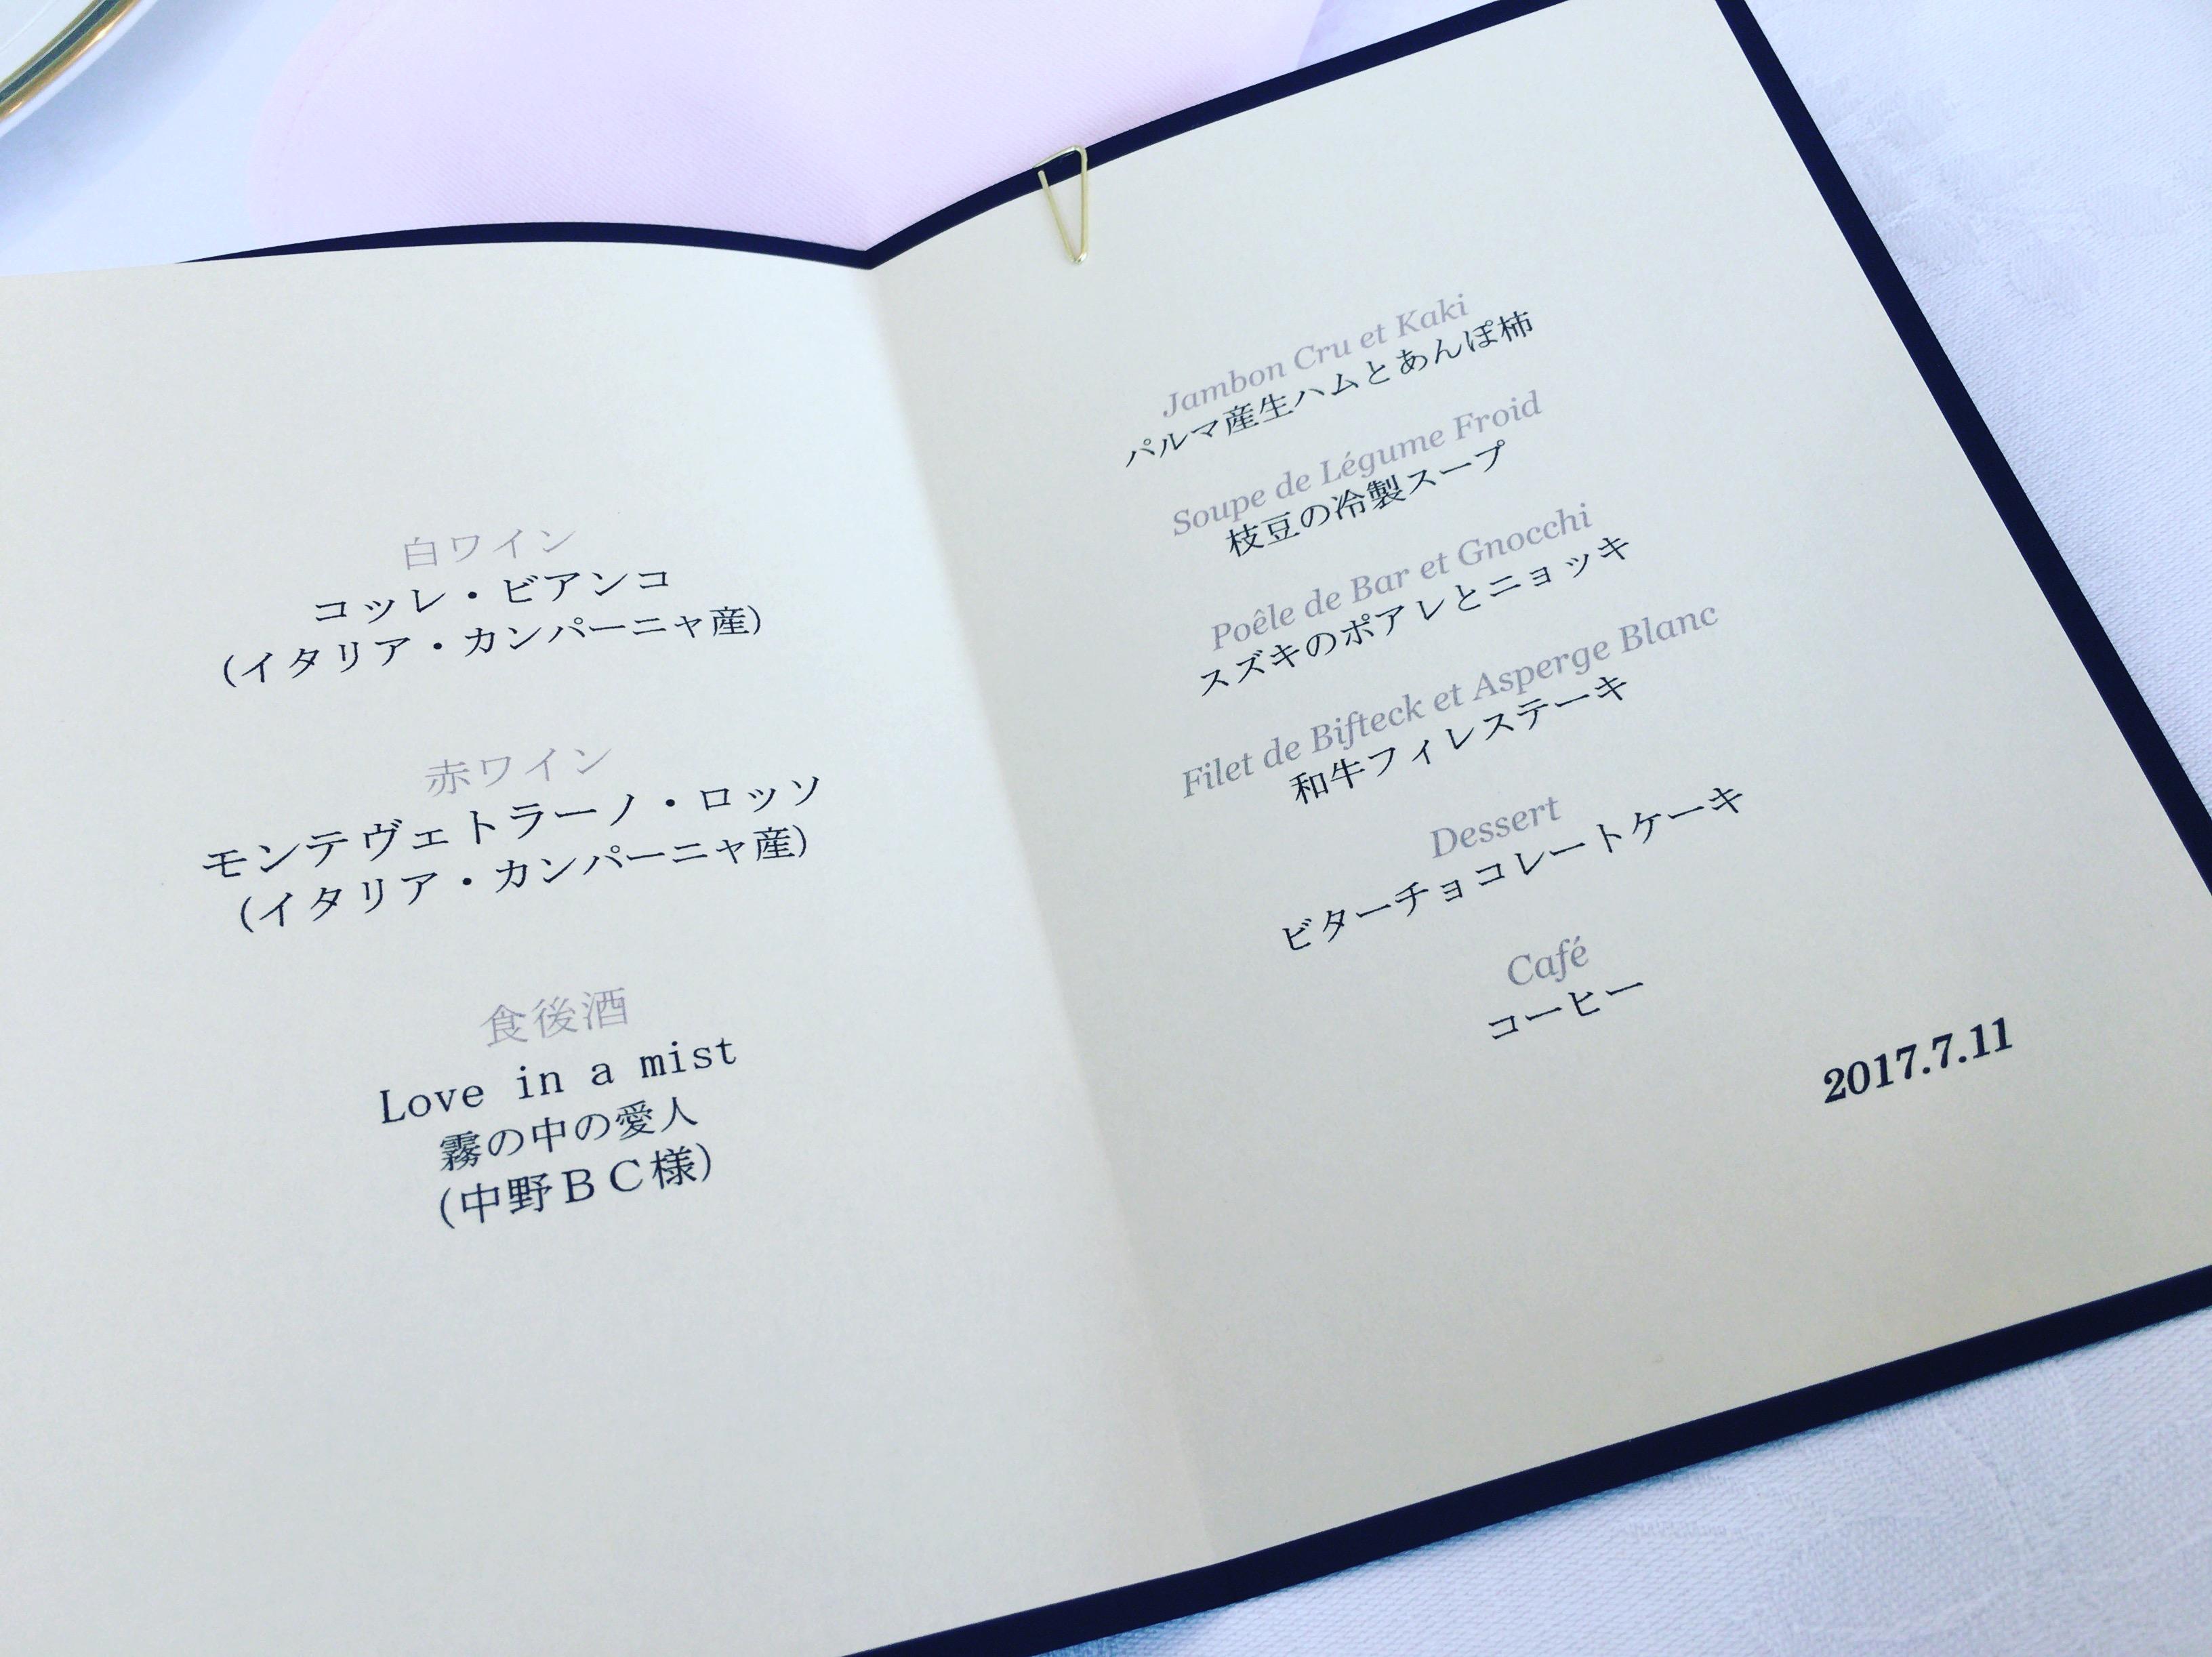 白ワイン
コッレ・ビアンコ
(イタリア・カンパーニャ産)
赤ワイン
モンテヴェトラーノ・ロッソ
(イタリア・カンパーニャ産)
食後酒
Love in a mist
霧の中の愛人
(中野ＢＣ様)
Jambon Cru et Kaki
パルマ産生ハムとあんぽ柿
Soupe de Légume Froid
枝豆の冷製スープ
Poêle de Bar et Gnocchi
スズキのポアレとニョッキ
Filet de Bifteck et Asperge Blanc
和牛フィレステーキ
Dessert
ビターチョコレートケーキ
Café
コーヒー
2017.7.11